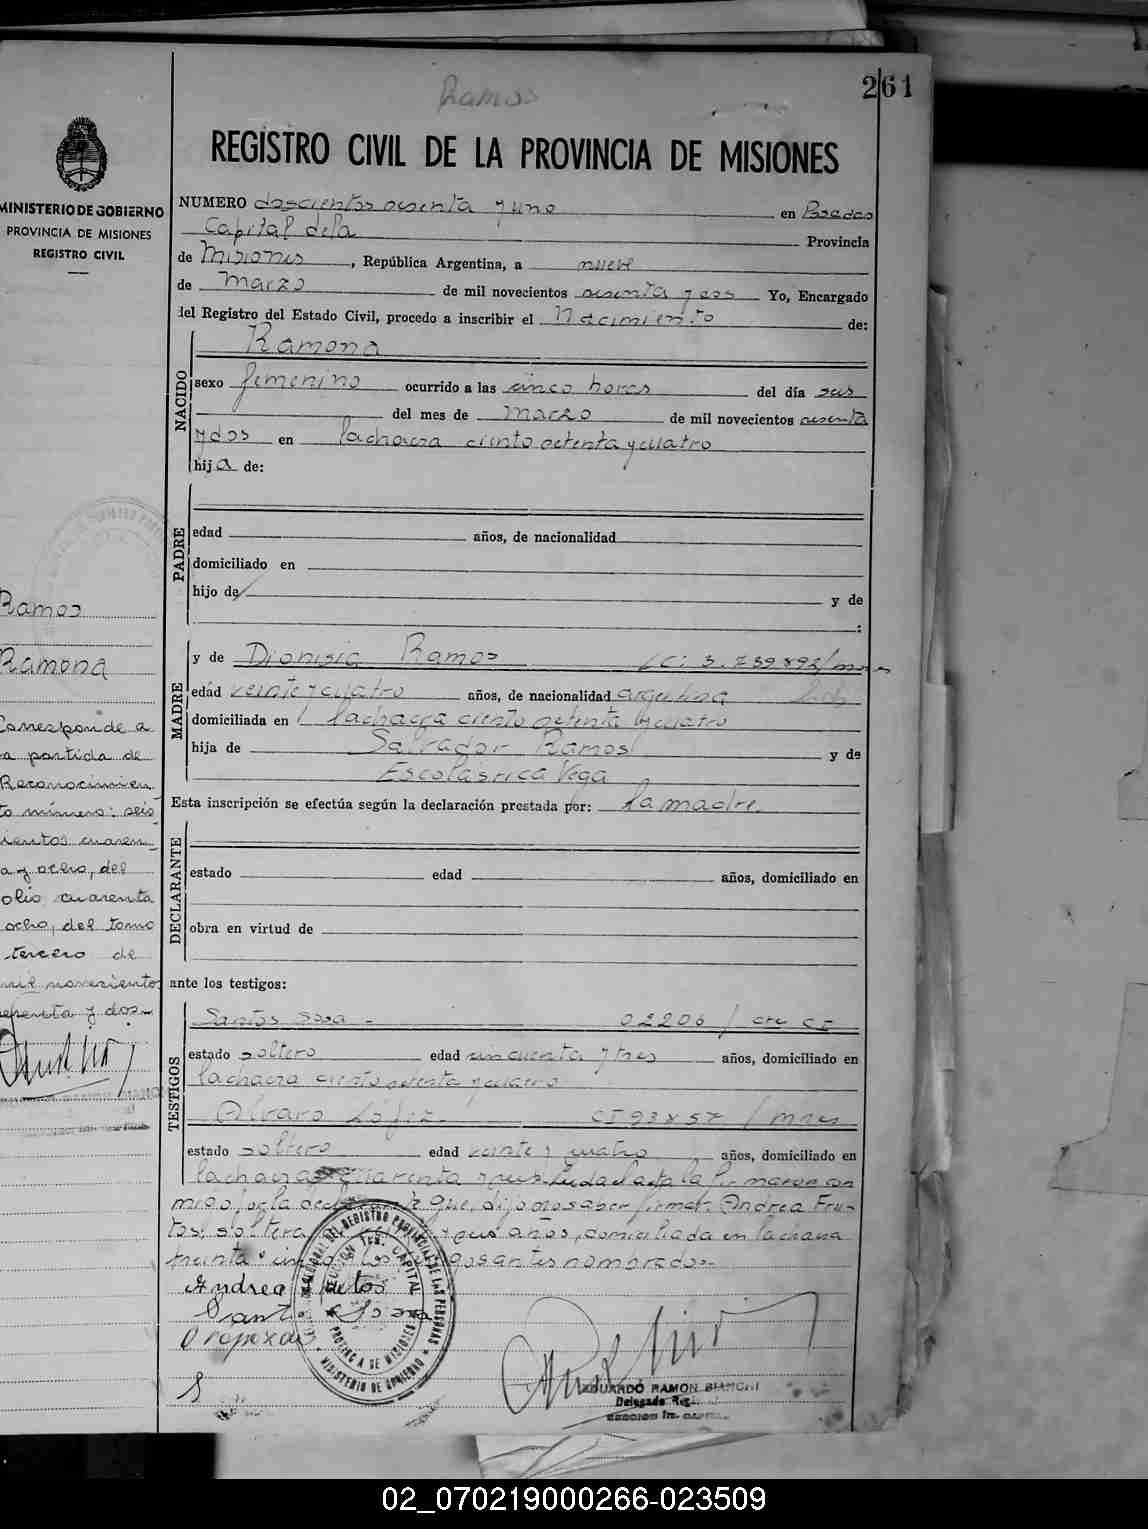 Ramos
261
REGISTRO CIVIL DE LA PROVINCIA DE MISIONES
MINISTERIO DE GOBIERNO
PROVINCIA DE MISIONES
REGISTRO CIVIL
NUMERO doscientos sesenta y uno en Posadas
Capital de la Provincia
de Misiones, República Argentina, a nueve
de Marzo de mil novecientos sesenta y dos Yo, Encargado
del Registro del Estado Civil, procedo a inscribir el Nacimiento de:
Ramona
NACIDO
sexo femenino ocurrido a las cinco horas del día seis
del mes de marzo de mil novecientos sesenta
y dos en la chacra ciento setenta y cuatro
hija de:
PADRE
edad años, de nacionalidad
domiciliado en
hijo de y de
:
MADRE
y de Dionisia Ramos
edad veinte y cuatro años, de nacionalidad argentina
domiciliada en la chacra ciento setenta y cuatro
hija de Salvador Ramos y de
Escolástica Vega
Esta inscripción se efectúa según la declaración prestada por: la madre
DECLARANTE
estado edad años, domiciliado en
obra en virtud de
ante los testigos:
TESTIGOS
Santos Sosa - 02206
estado soltero edad cincuenta y tres años, domiciliado en
la chacra ciento setenta y cuatro
Alvaro López CI 93857 / mnes
estado soltero edad veinte y cuatro años, domiciliado en
la chacra cuarenta y seis Leída el acta la firmaron con
migo por la que dijo no saber firmar Andrea Fru-
tos, soltera años, domiciliada en la chacra
treinta antes nombrados-
Andrea Frutos
Ramos
Ramona
Corresponde a
la partida de
Reconocimien
to número: seis
cientos cuaren-
ta y ocho, del
folio cuarenta
y ocho, del tomo
tercero de
mil novecientos
setenta y dos-
REGISTRO PROVINCIAL DE LAS PERSONAS
CAPITAL
PROVINCIA DE MISIONES
MINISTERIO DE GOBIERNO
EDUARDO RAMON BIANCHI
Delegado
02_070219000266-023509